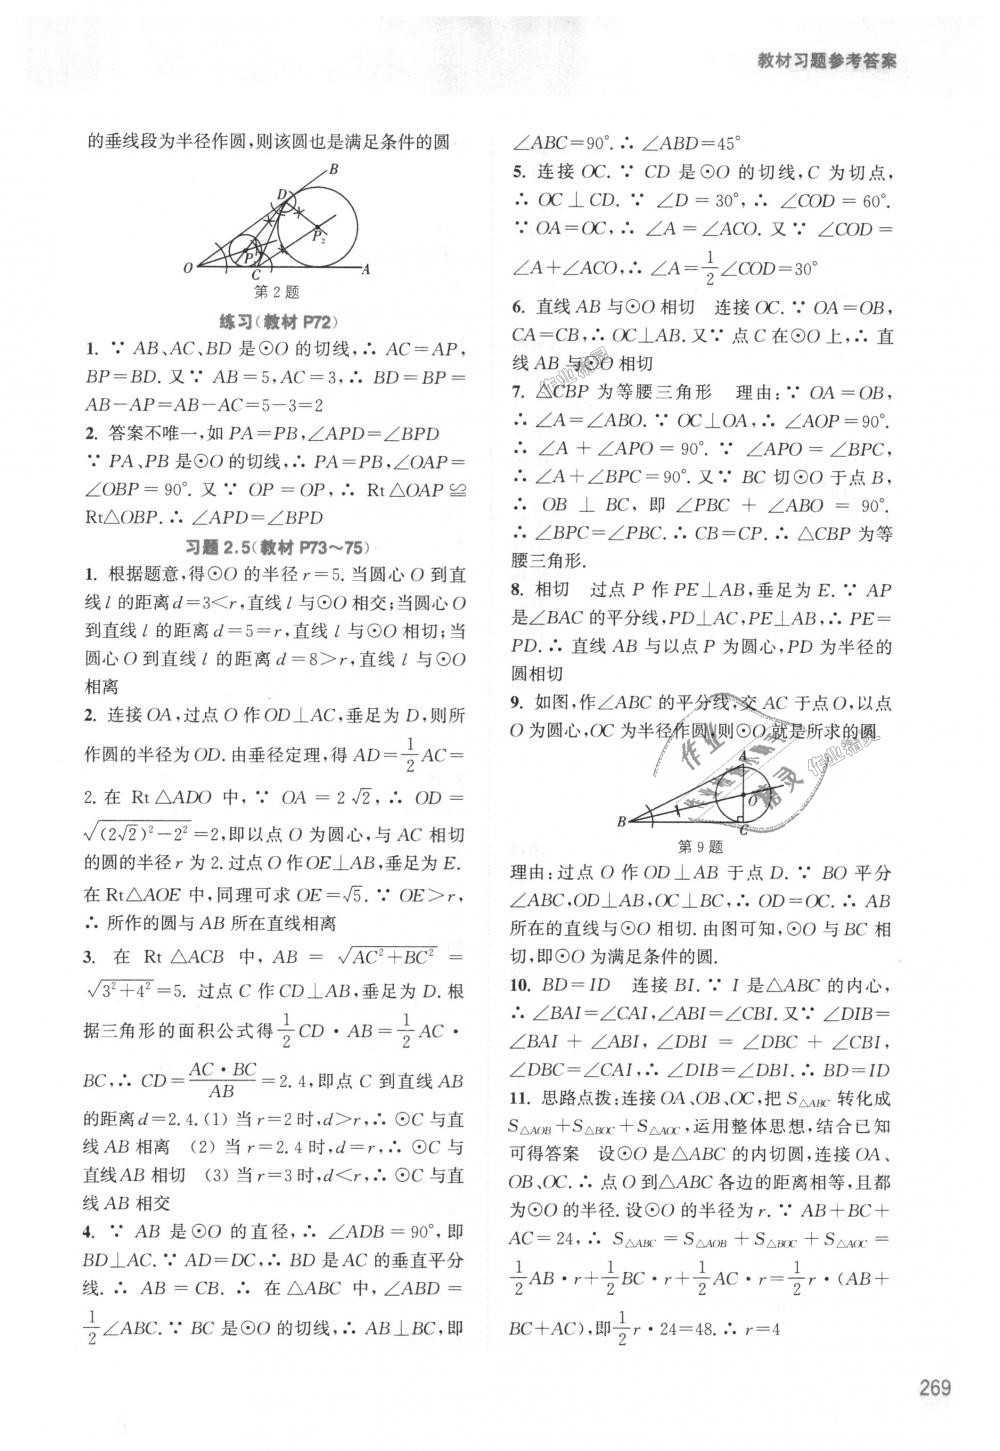 教材习题参考答案
的垂线段为半径作圆,则该圆也是满足条件的圆
B
D
P₂
P₁
O
C
A
第2题
练习(教材 P72)
1. ∵ AB、AC、BD 是⊙O 的切线,∴ AC=AP,
BP=BD. 又∵ AB=5,AC=3,∴ BD=BP=
AB-AP=AB-AC=5-3=2
2. 答案不唯一,如 PA=PB,∠APD=∠BPD
∵ PA、PB 是⊙O 的切线,∴ PA=PB,∠OAP=
∠OBP=90°. 又∵ OP=OP,∴ Rt△OAP≌
Rt△OBP. ∴ ∠APD=∠BPD
习题 2.5(教材 P73~75)
1. 根据题意,得⊙O 的半径 r=5. 当圆心 O 到直
线 l 的距离 d=3<r,直线 l 与⊙O 相交;当圆心 O
到直线 l 的距离 d=5=r,直线 l 与⊙O 相切;当
圆心 O 到直线 l 的距离 d=8>r,直线 l 与⊙O
相离
2. 连接 OA,过点 O 作 OD⊥AC,垂足为 D,则所
作圆的半径为 OD. 由垂径定理,得 AD=1/2 AC=
2. 在 Rt△ADO 中,∵ OA=2√2,∴ OD=
√((2√2)²-2²)=2,即以点 O 为圆心,与 AC 相切
的圆的半径 r 为 2. 过点 O 作 OE⊥AB,垂足为 E.
在 Rt△AOE 中,同理可求 OE=√5. ∵ OE>r,
∴ 所作的圆与 AB 所在直线相离
3. 在 Rt△ACB 中,AB=√(AC²+BC²)=
√(3²+4²)=5. 过点 C 作 CD⊥AB,垂足为 D. 根
据三角形的面积公式得1/2 CD·AB=1/2 AC·
BC,∴ CD=AC·BC/AB=2.4,即点 C 到直线 AB
的距离 d=2.4. (1) 当 r=2 时,d>r,∴ ⊙C 与直
线 AB 相离 (2) 当 r=2.4 时,d=r,∴ ⊙C 与
直线 AB 相切 (3) 当 r=3 时,d<r,∴ ⊙C 与直
线 AB 相交
4. ∵ AB 是⊙O 的直径,∴ ∠ADB=90°,即
BD⊥AC. ∵ AD=DC,∴ BD 是 AC 的垂直平分
线. ∴ AB=CB. ∴ 在△ABC 中,∠ABD=
1/2∠ABC. ∵ BC 是⊙O 的切线,∴ AB⊥BC,即
∠ABC=90°. ∴ ∠ABD=45°
5. 连接 OC. ∵ CD 是⊙O 的切线,C 为切点,
∴ OC⊥CD. ∵ ∠D=30°,∴ ∠COD=60°.
∵ OA=OC,∴ ∠A=∠ACO. 又∵ ∠COD=
∠A+∠ACO,∴ ∠A=1/2∠COD=30°
6. 直线 AB 与⊙O 相切 连接 OC. ∵ OA=OB,
CA=CB,∴ OC⊥AB. 又∵ 点 C 在⊙O 上,∴ 直
线 AB 与⊙O 相切
7. △CBP 为等腰三角形 理由:∵ OA=OB,
∴ ∠A=∠ABO. ∵ OC⊥OA,∴ ∠AOP=90°.
∴ ∠A+∠APO=90°. ∵ ∠APO=∠BPC,
∴ ∠A+∠BPC=90°. 又∵ BC 切⊙O 于点 B,
∴ OB⊥BC,即∠PBC+∠ABO=90°.
∴ ∠BPC=∠PBC. ∴ CB=CP. ∴ △CBP 为等
腰三角形.
8. 相切 过点 P 作 PE⊥AB,垂足为 E. ∵ AP
是∠BAC 的平分线,PD⊥AC,PE⊥AB,∴ PE=
PD. ∴ 直线 AB 与以点 P 为圆心,PD 为半径的
圆相切
9. 如图,作∠ABC 的平分线,交 AC 于点 O,以点
O 为圆心,OC 为半径作圆,则⊙O 就是所求的圆
A
O
B
C
第9题
理由:过点 O 作 OD⊥AB 于点 D. ∵ BO 平分
∠ABC,OD⊥AB,OC⊥BC,∴ OD=OC. ∴ AB
所在的直线与⊙O 相切. 由图可知,⊙O 与 BC 相
切,即⊙O 为满足条件的圆.
10. BD=ID 连接 BI. ∵ I 是△ABC 的内心,
∴ ∠BAI=∠CAI,∠ABI=∠CBI. 又∵ ∠DIB=
∠BAI+∠ABI,∠DBI=∠DBC+∠CBI,
∠DBC=∠CAI,∴ ∠DIB=∠DBI. ∴ BD=ID
11. 思路点拨:连接 OA、OB、OC,把 S△ABC 转化成
S△AOB+S△BOC+S△AOC,运用整体思想,结合已知
可得答案 设⊙O 是△ABC 的内切圆,连接 OA、
OB、OC. ∴ 点 O 到△ABC 各边的距离相等,且都
为⊙O 的半径. 设⊙O 的半径为 r. ∵ AB+BC+
AC=24,∴ S△ABC=S△AOB+S△BOC+S△AOC=
1/2 AB·r+1/2 BC·r+1/2 AC·r=1/2 r·(AB+
BC+AC),即1/2 r·24=48. ∴ r=4
作业精灵
作业精灵
269